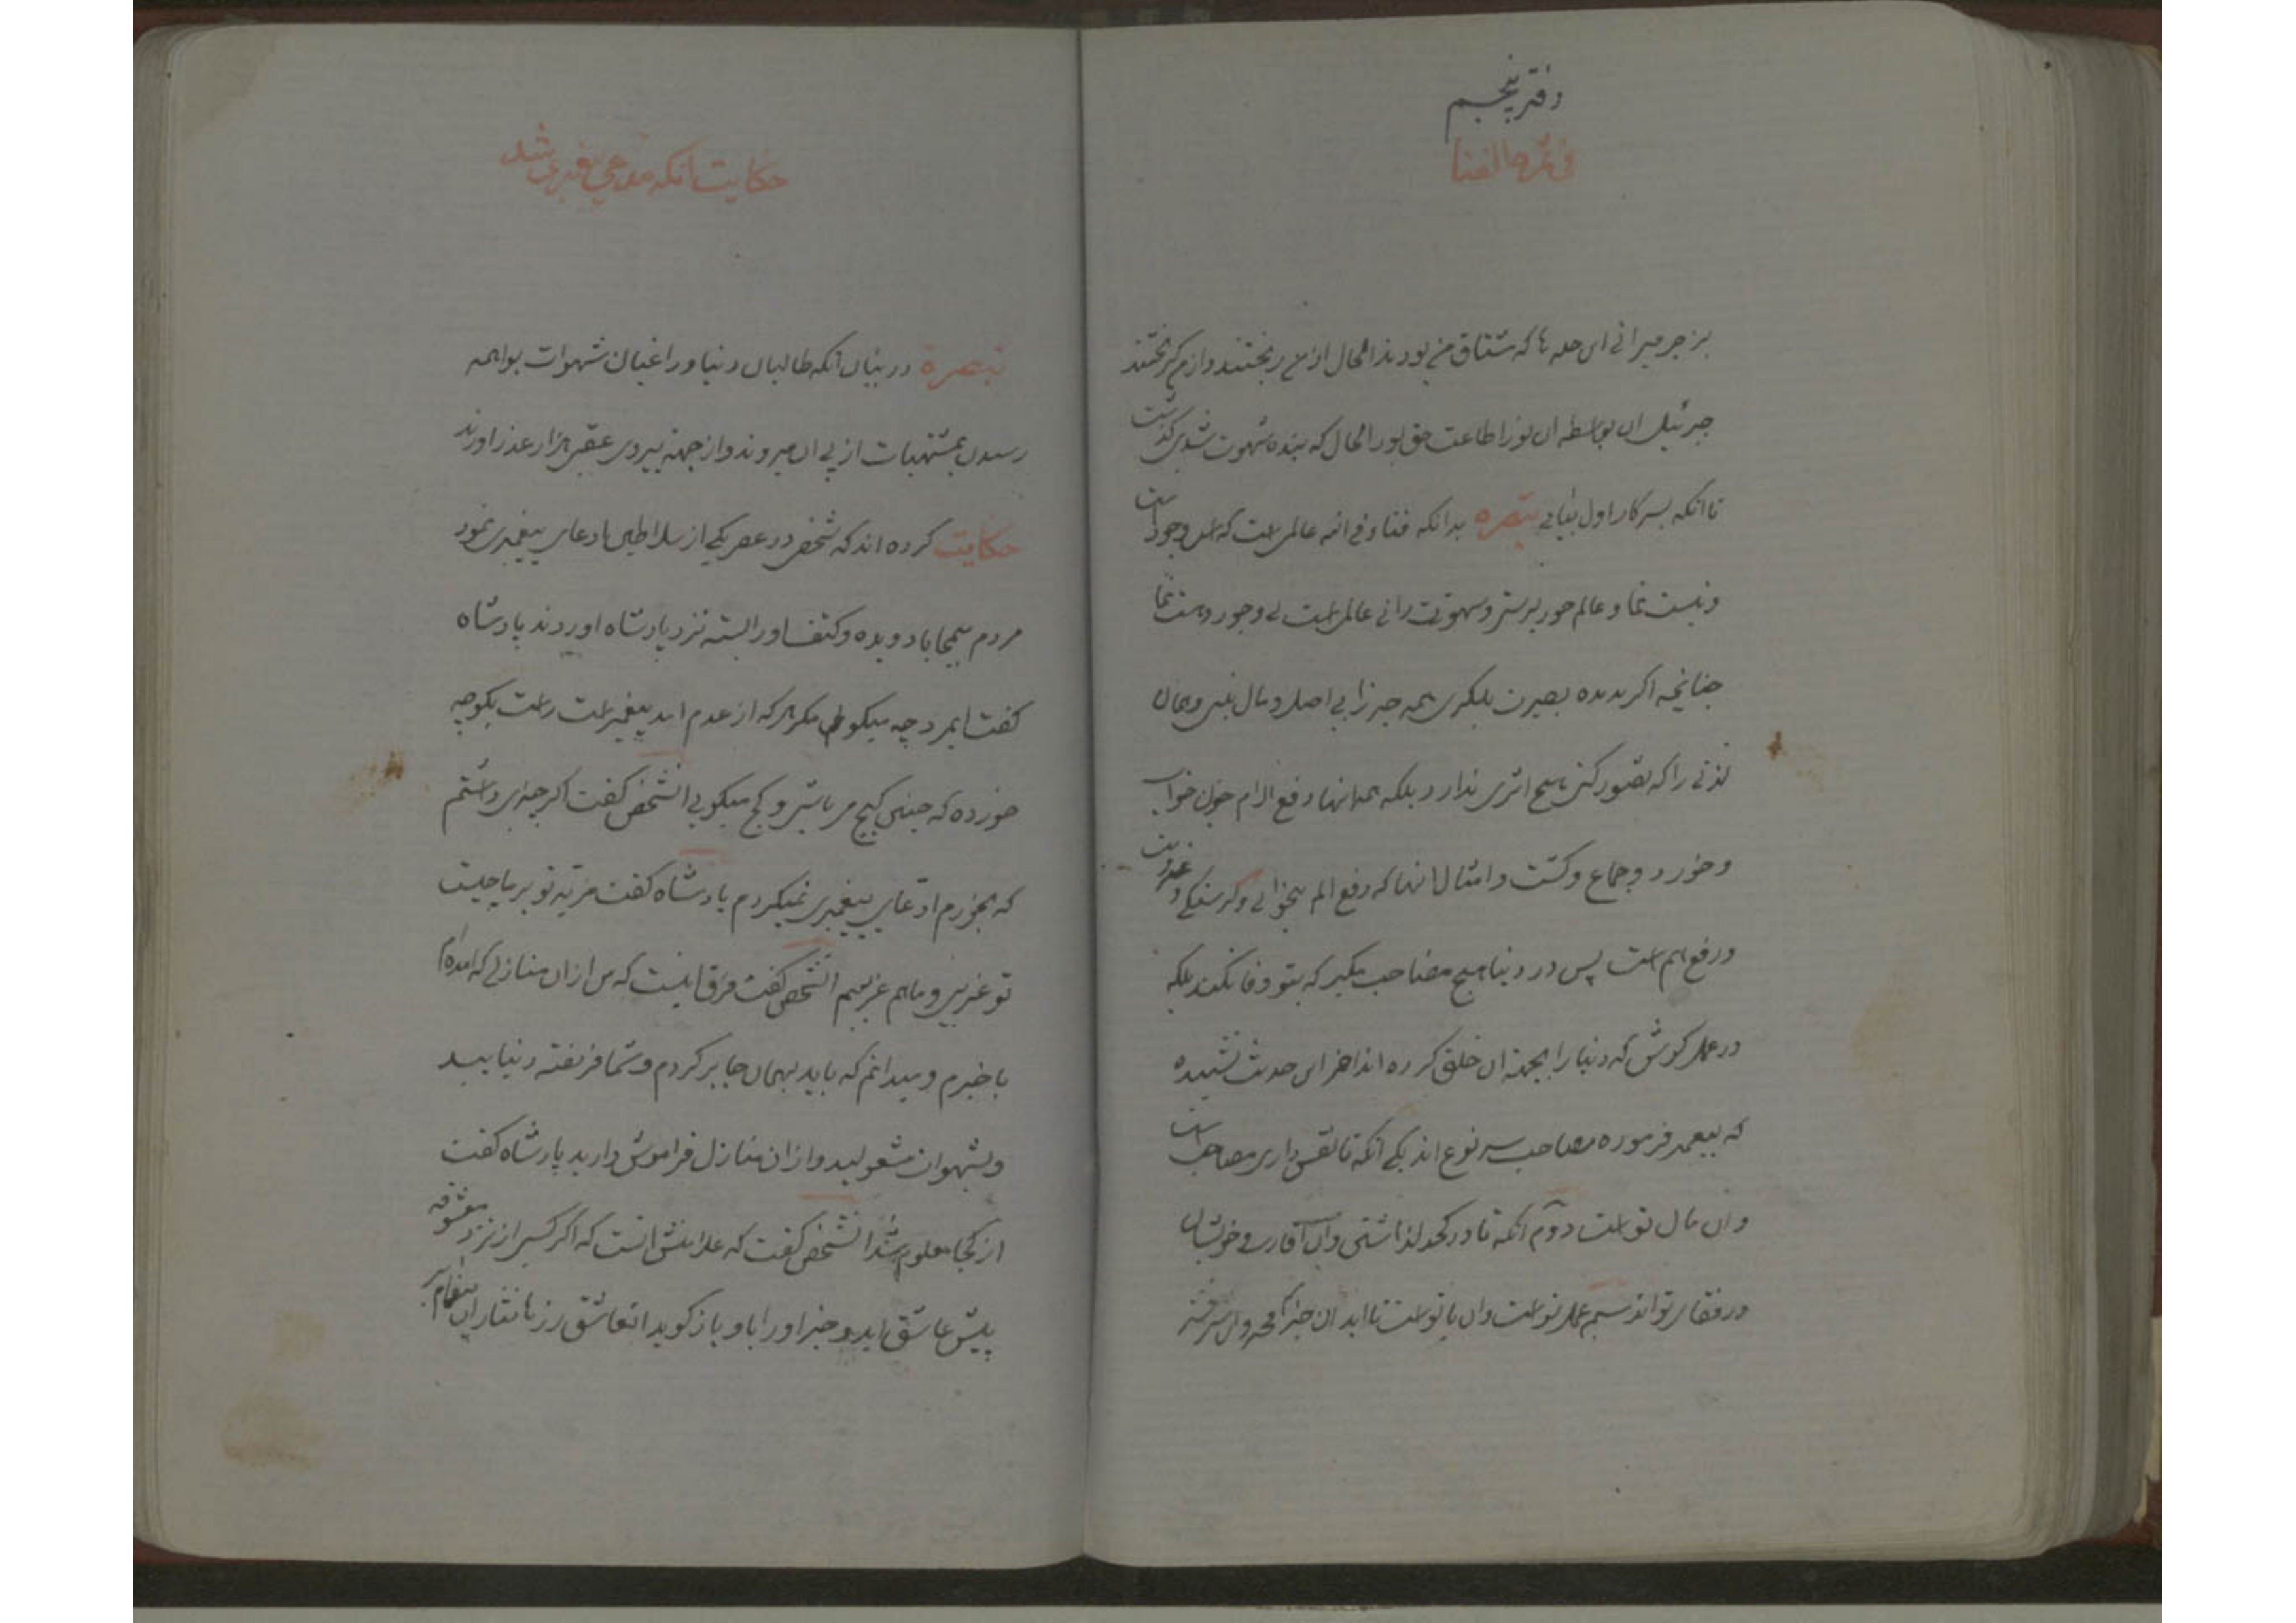 دفتر پنجم
فی شرح الفنا
بز جر میرانی این حله ها که مشتاق می بودند الحال از تو ریختند و از هم گریختند
جبرئیل ان بواسطه ان نور اطاعت حق بود الحال که بنده شهوت شدی گذشت
تا انکه بسر کار اول بیایی تبصره بدانکه فنا و فی انه عالمی است که این وجود است
و نیست نما و عالم خود پرستی و شهوت رانی عالمی است بی وجود و هست نما
چنانچه اگر بدیده بصیرت بنگری همه چیز را بی اصل و مال بینی و همان
لذتی را که تصور کنی هیچ اثری ندارد بلکه همه انها دفع الام چون خواب
و خورد و جماع و کشت و امثال انها که دفع الم بیخوابی و گرسنگی و
و رفع الم است پس در دنیا هیچ مصاحب مگیر که بتو وفا نکند بلکه
در عمل کوش که دنیا را بجهة ان خلق کرده اند اخر این حدیث نشنیده
که پیغمبر فرموده مصاحب سه نوع اند یکی انکه تا نفس داری مصاحب است
و ان مال تو است دوم انکه تا در لحد گذاشتن و ان اقارب و خویشان
و رفقای تو اند سیم عمل تو است و ان با تو است تا ابد ان
حکایت انکه مدعی پیغمبری شد
تبصره در بیان انکه طالبان دنیا و راغبان شهوات بواهمه
رسیدن بمشتهیات از پی ان میروند و از جهة پیروی عقبی هزار عذر اورند
حکایت کرده اند که شخصی در عصر یکی از سلاطین ادعای پیغمبری نمود
مردم بیمحابا دویده و کتف او را بسته نزد پادشاه اوردند پادشاه
گفت ایمرد چه میکوئی مگر هر که از عدم اید پیغمبر است راست بگو چه
خورده که چنین گیج می باشی و کج میکویی انشخص گفت اگر چیزی داشتم
که بخورم ادعای پیغمبری نمیکردم پادشاه گفت مزیه تو بر ما چیست
تو غریبی و ما هم غریبیم انشخص گفت فرق اینست که من از ان منازلی که امده ام
با خبرم و میدانم که باید بهمان جا بر کردم و شما فریفته دنیایید
و بشهوات مشغولید و از ان منازل فراموش دارید پادشاه گفت
از کجا معلوم شد انشخص گفت که علامتش انست که اگر کسی از نزد معشوقه
پیش عاشق اید و خبر او را باو باز گوید ان عاشق زر ها نثار این پیغام بر